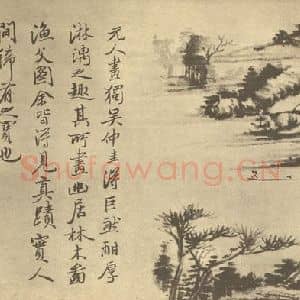 元人畫獨吳仲圭得巨然酣厚
淋漓之趣其所畫幽居林木㠯
漁父圖余皆得見真蹟實人
間稀有之寶也
Shufawang.CN